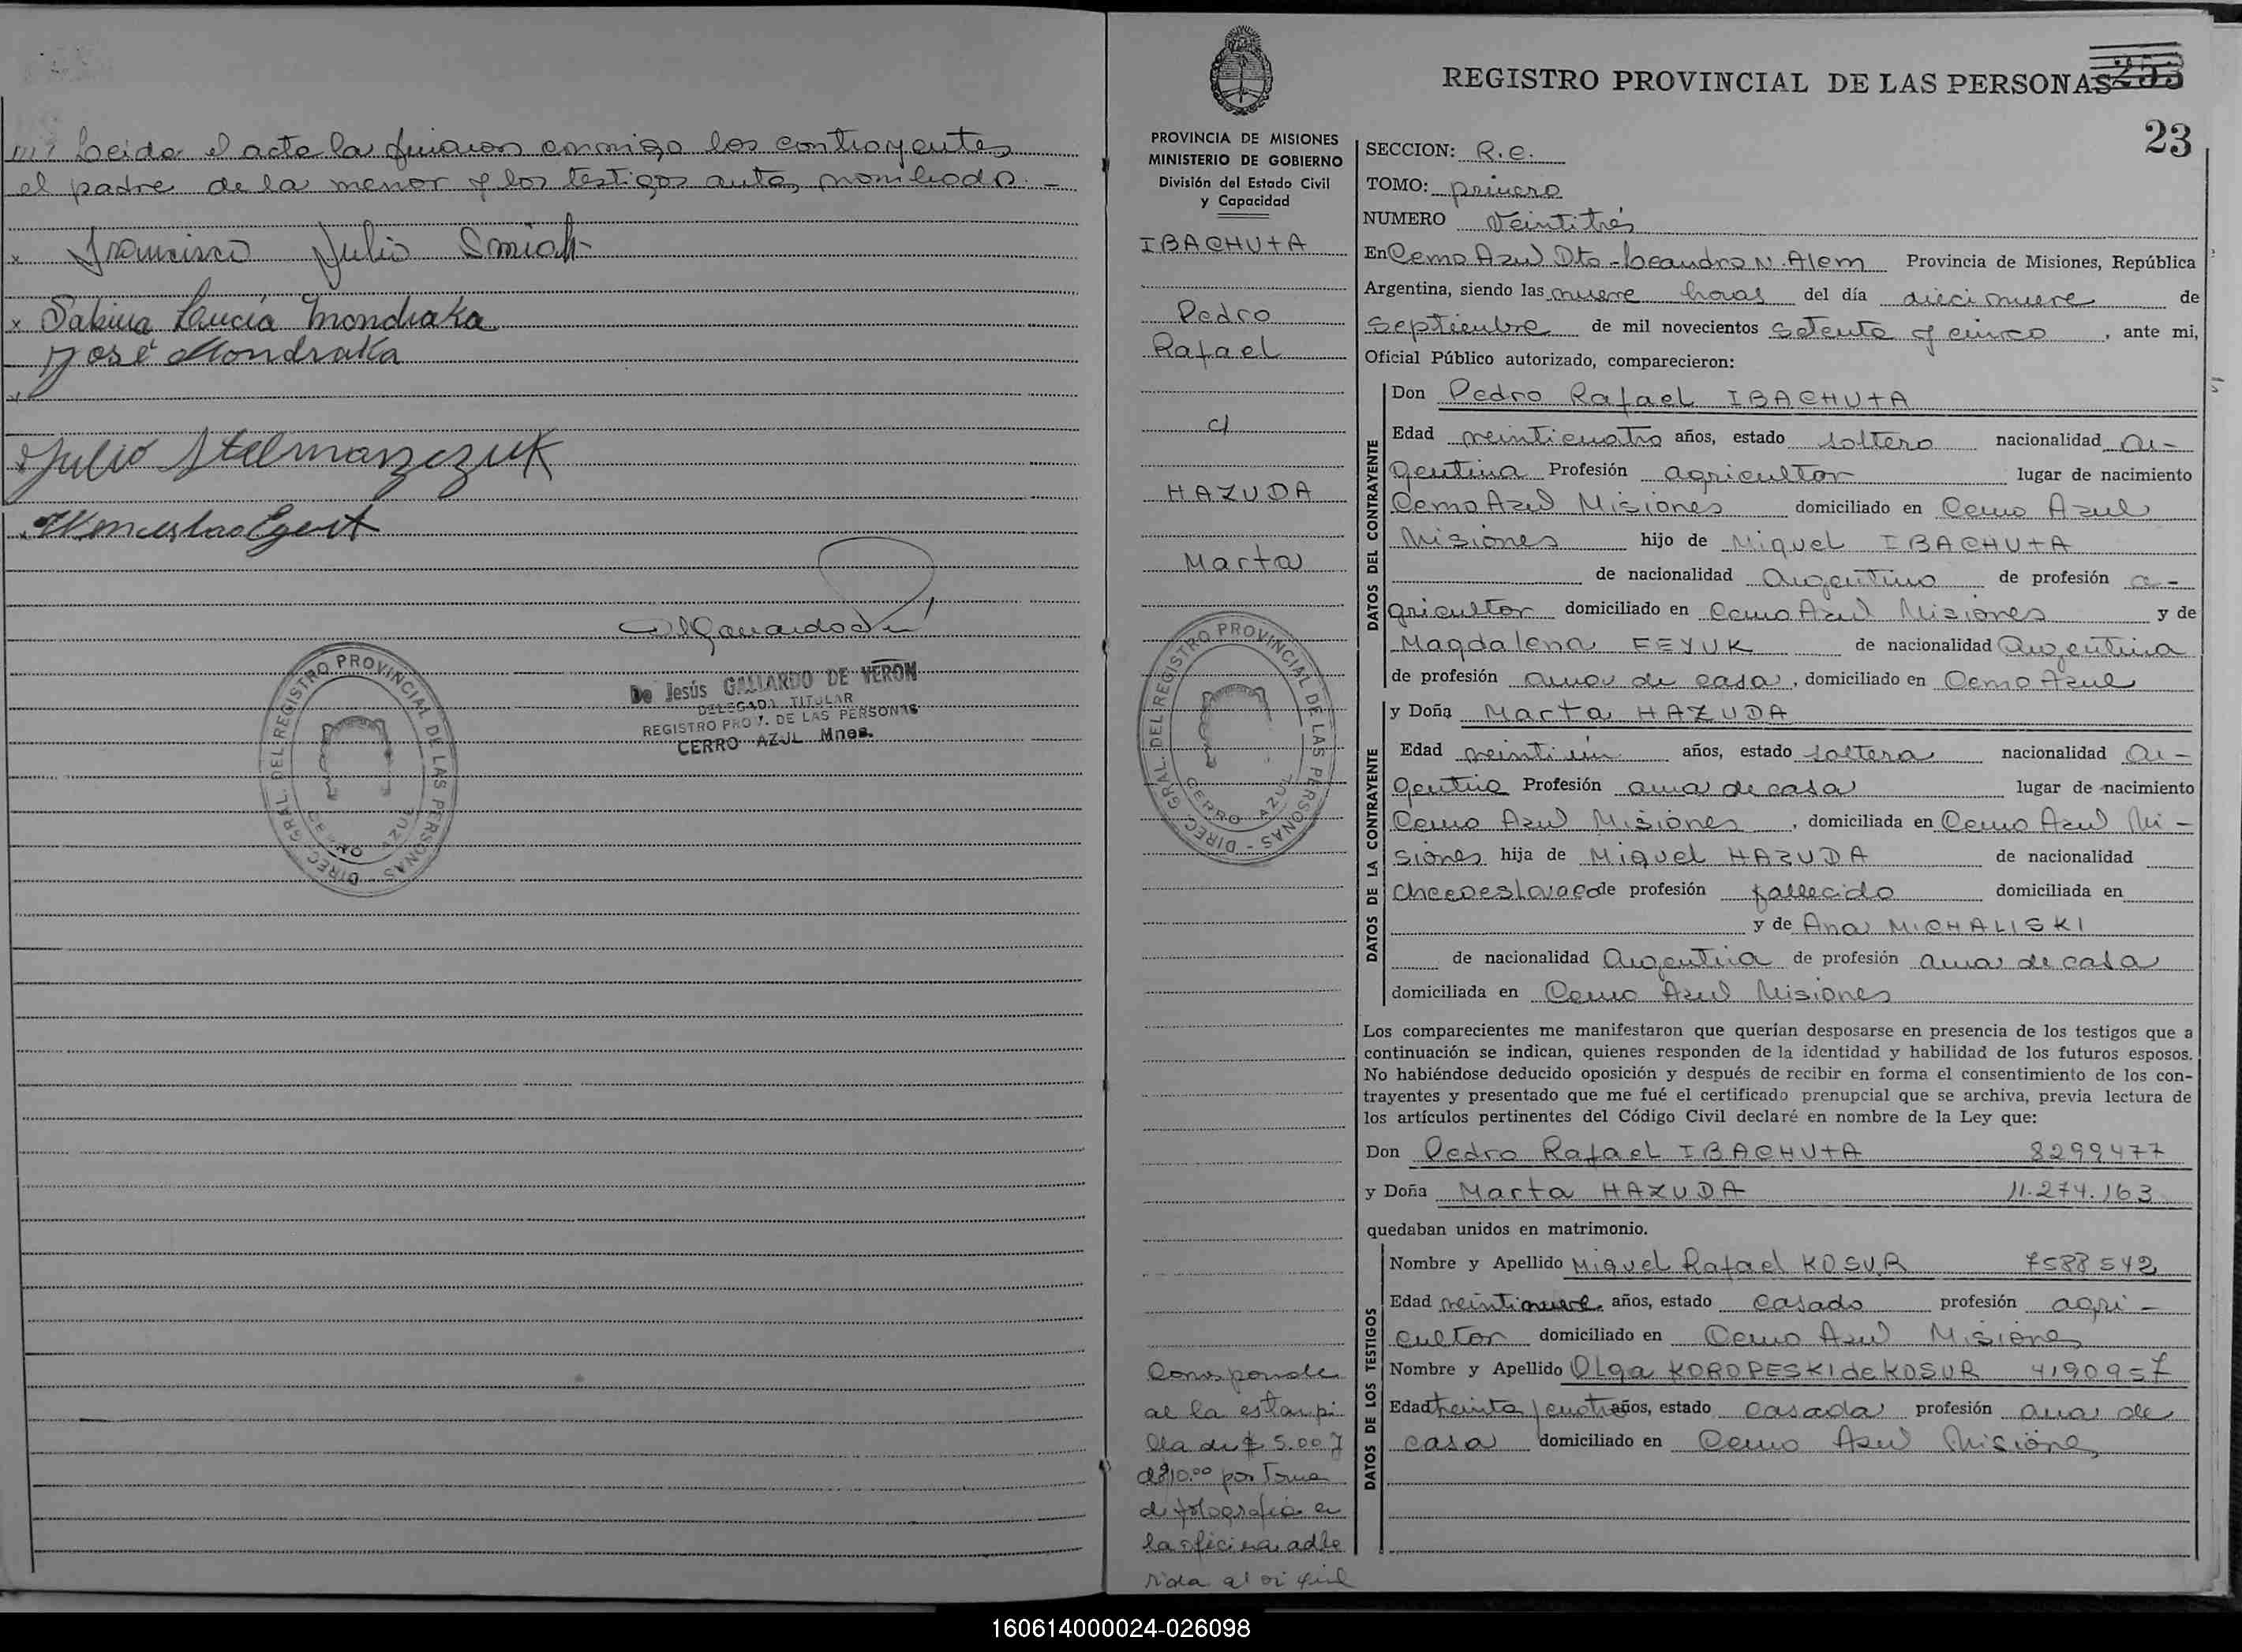 Leida el acta la firmaron conmigo los contrayentes
el padre de la menor y los testigos antes nombrados.-
x Francisco Julio Smiak
x Sabina Lucía Mondraka
José Mondraka
x
Julio Stelmaszczuk
Wenceslao Egert
De Jesús GALLARDO DE VERON
DELEGADA TITULAR
REGISTRO PROV. DE LAS PERSONAS
CERRO AZUL Mnes.
DIREC. GRAL. DEL REGISTRO PROVINCIAL DE LAS PERSONAS
CERRO AZUL
PROVINCIA DE MISIONES
MINISTERIO DE GOBIERNO
División del Estado Civil
y Capacidad
IBACHUTA
Pedro
Rafael
c/
HAZUDA
Marta
DIREC. GRAL. DEL REGISTRO PROVINCIAL DE LAS PERSONAS -
CERRO AZUL
Corresponde
a la estampi
lla de $ 5.00 y
de $10.00 por Toma
de fotografia en
la oficina adhe
rida al
REGISTRO PROVINCIAL DE LAS PERSONAS 253
23
SECCION: R.C.
TOMO: primero
NUMERO Veintitrés
En Cerro Azul Dto-Leandro N. Alem Provincia de Misiones, República
Argentina, siendo las nueve horas del día diecinueve de
Septiembre de mil novecientos setenta y cinco, ante mi,
Oficial Público autorizado, comparecieron:
DATOS DEL CONTRAYENTE
Don Pedro Rafael IBACHUTA
Edad veinticuatro años, estado soltero nacionalidad ar-
gentina Profesión agricultor lugar de nacimiento
Cerro Azul Misiones domiciliado en Cerro Azul
Misiones hijo de Miguel IBACHUTA
de nacionalidad Argentino de profesión a-
gricultor domiciliado en Cerro Azul Misiones y de
Magdalena EEYUK de nacionalidad Argentina
de profesión ama de casa, domiciliado en Cerro Azul
DATOS DE LA CONTRAYENTE
y Doña Marta HAZUDA
Edad veintiún años, estado soltera nacionalidad Ar-
gentina Profesión ama de casa lugar de nacimiento
Cerro Azul Misiones, domiciliada en Cerro Azul Mi-
siones hija de Miguel HAZUDA de nacionalidad
checoeslovaco de profesión fallecido domiciliada en
y de Ana MICHALISKI
de nacionalidad Argentina de profesión ama de casa
domiciliada en Cerro Azul Misiones
Los comparecientes me manifestaron que querían desposarse en presencia de los testigos que a
continuación se indican, quienes responden de la identidad y habilidad de los futuros esposos.
No habiéndose deducido oposición y después de recibir en forma el consentimiento de los con-
trayentes y presentado que me fué el certificado prenupcial que se archiva, previa lectura de
los artículos pertinentes del Código Civil declaré en nombre de la Ley que:
Don Pedro Rafael IBACHUTA 8299477
y Doña Marta HAZUDA 11.274.163
quedaban unidos en matrimonio.
DATOS DE LOS TESTIGOS
Nombre y Apellido Miguel Rafael KOSUR 7588542
Edad veintinueve años, estado casado profesión agri-
cultor domiciliado en Cerro Azul Misiones
Nombre y Apellido Olga KOROPESKI de KOSUR 4190957
Edad treinta y cuatro años, estado casada profesión ama de
casa domiciliado en Cerro Azul Misiones
160614000024-026098